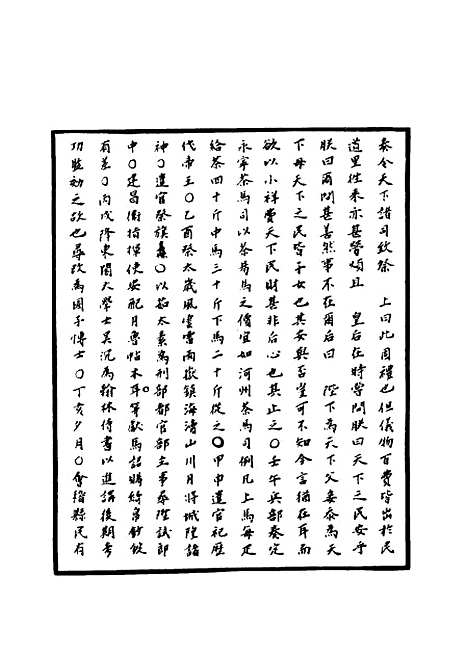 奏令天下諸司致祭　上曰此固禮也但儀物百費皆出於民
道里往來亦甚勞煩且　皇后在時嘗問朕曰天下之民安乎
朕曰爾問甚善然事不在爾后曰　陛下為天下父妾忝為天
下母天下之民皆子女也其安與否豈可不知今言猶在耳而
欲以小祥費天下民財甚非后心也其止之○壬午兵部奏定
永寧茶馬司以茶易馬之價宜如河州茶馬司例凡上馬每疋
給茶四十斤中馬三十斤下馬二十斤從之○甲申遣官祀歷
代帝王○乙酉祭太歲風雲雷雨嶽鎮海瀆山川月將城隍諸
神○遣官祭旗纛○以茹太素為刑部都官部主事秦陞試郎
中○建昌衛指揮使安配月魯帖木耳等獻馬詔賜綺帛鈔錠
有差○丙戌降東閣大學士吳沉為翰林侍書以進講後期考
功監劾之故也尋改為國子博士○丁亥夕月○會稽縣民有